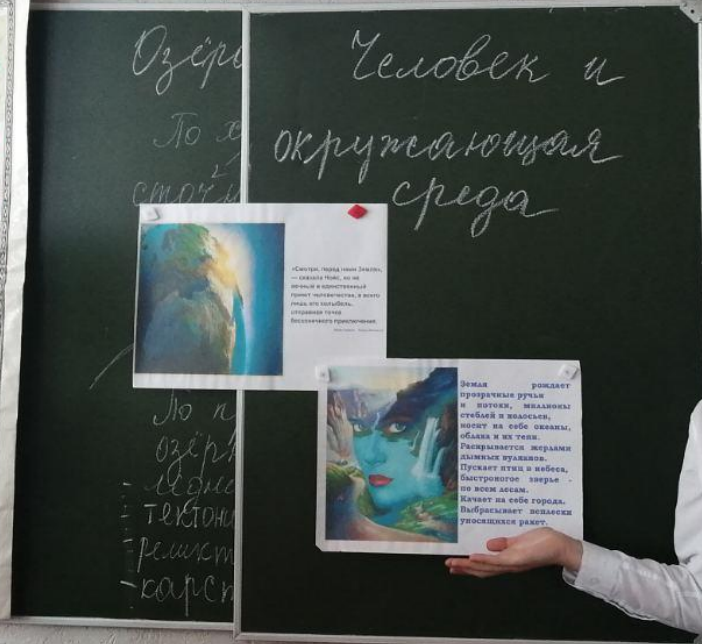 Озёр
По х
сточн
Человек и
окружающая
среда
«Смотри, перед нами Земля»,
— сказала Нойс, но не
вечный и единственный
приют человечества, а всего
лишь его колыбель,
отправная точка
бесконечного приключения.
Земля рождает
прозрачные ручьи
и потоки, миллионы
стеблей и колосьев,
носит на себе океаны,
облака и их тени.
Раскрывается жерлами
дымных вулканов.
Пускает птиц в небеса,
быстроногое зверье -
по всем лесам.
Качает на себе города.
Выбрасывает всплески
уносящихся ракет.
По п
озёр
ледн
тектони
реликт
карст